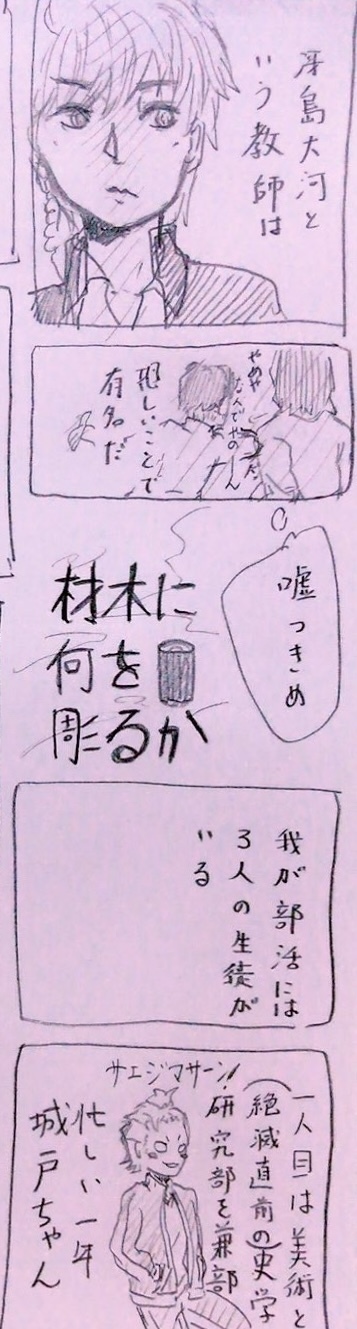 冴島大河と
いう教師は
やめや
なんでやのーん
恐しいことで
有名だ
嘘つきめ
材木に
何を
彫るか
我が部活には
3人の生徒が
いる
サエジマサーン!
一人目は美術と
(絶滅直前の)史学
研究部を兼部
忙しい一年
城戸ちゃん